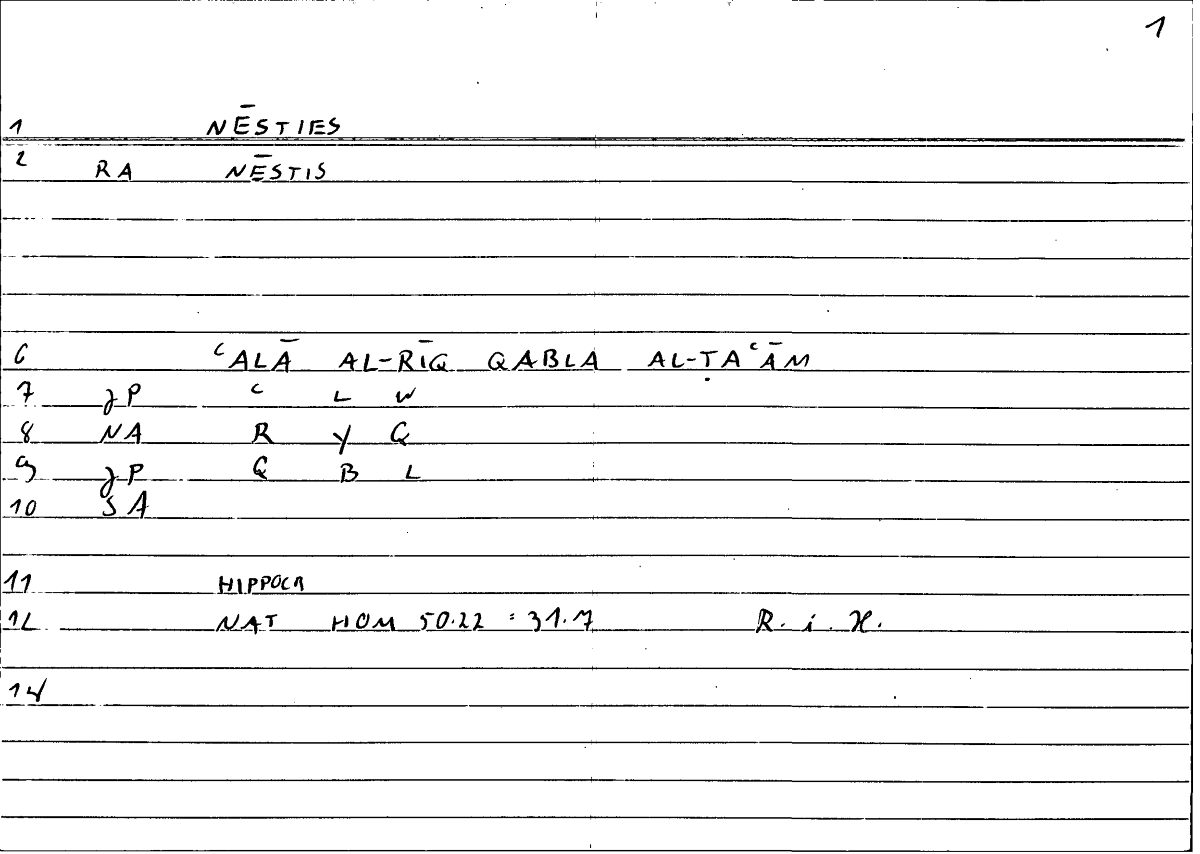 1
1 NĒSTIES
2 RA NĒSTIS
6 ʿALĀ AL-RĪQ QABLA AL-ṬAʿĀM
7 JP ʿ L W
8 NA R Y Q
9 JP Q B L
10 SA
11 HIPPOCR
12 NAT HOM 50.22 = 31.17 R. i. H.
14